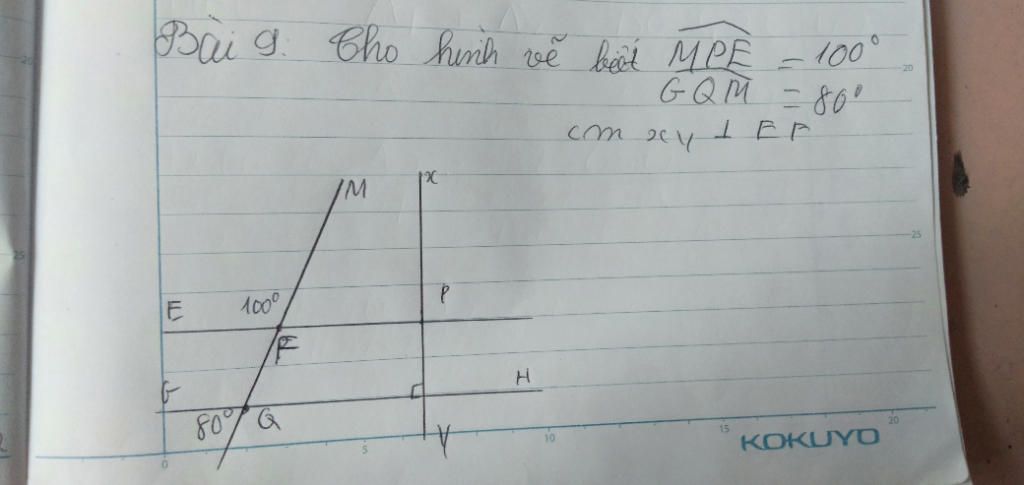 Bài 9: Cho hình vẽ biết MPE = 100°
GQM = 80°
cm xy ⊥ EF
M
x
E
100°
P
F
G
H
80°
Q
y
0
5
10
15
20
KOKUYO
20
25
20
25